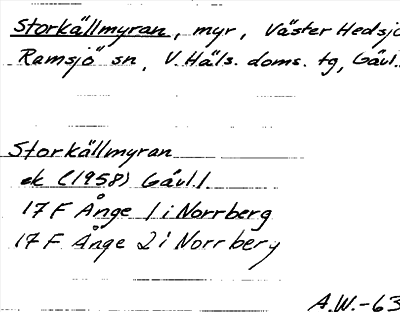 Storkällmyran, myr, Väster Hedsjö
Ramsjö sn, V. Häls. doms. tg, Gävl.
Storkällmyran
ek (1958) Gävl. l.
17 F Ånge 1 i Norrberg
17 F Ånge 2 i Norrberg
A.W.-63